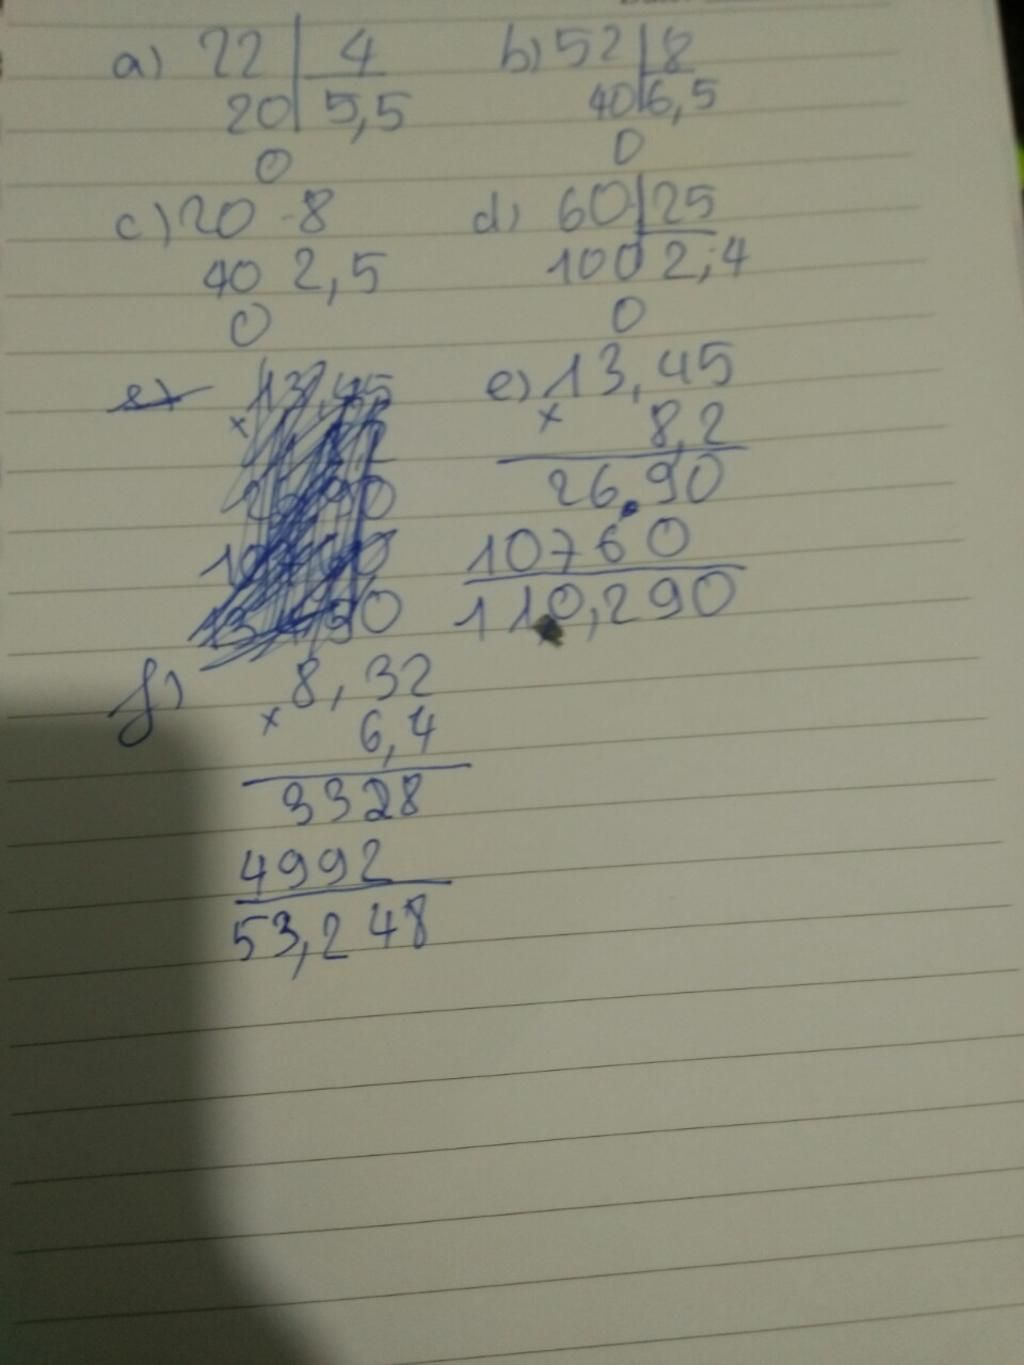 a) 22 4 b) 52 8
20 5,5 40 6,5
0 0
c) 20 8 d) 60 25
40 2,5 100 2,4
0 0
e) 13,45
x 8,2
26 90
10760
110,290
f) 8,32
x 6,4
3328
4992
53,248